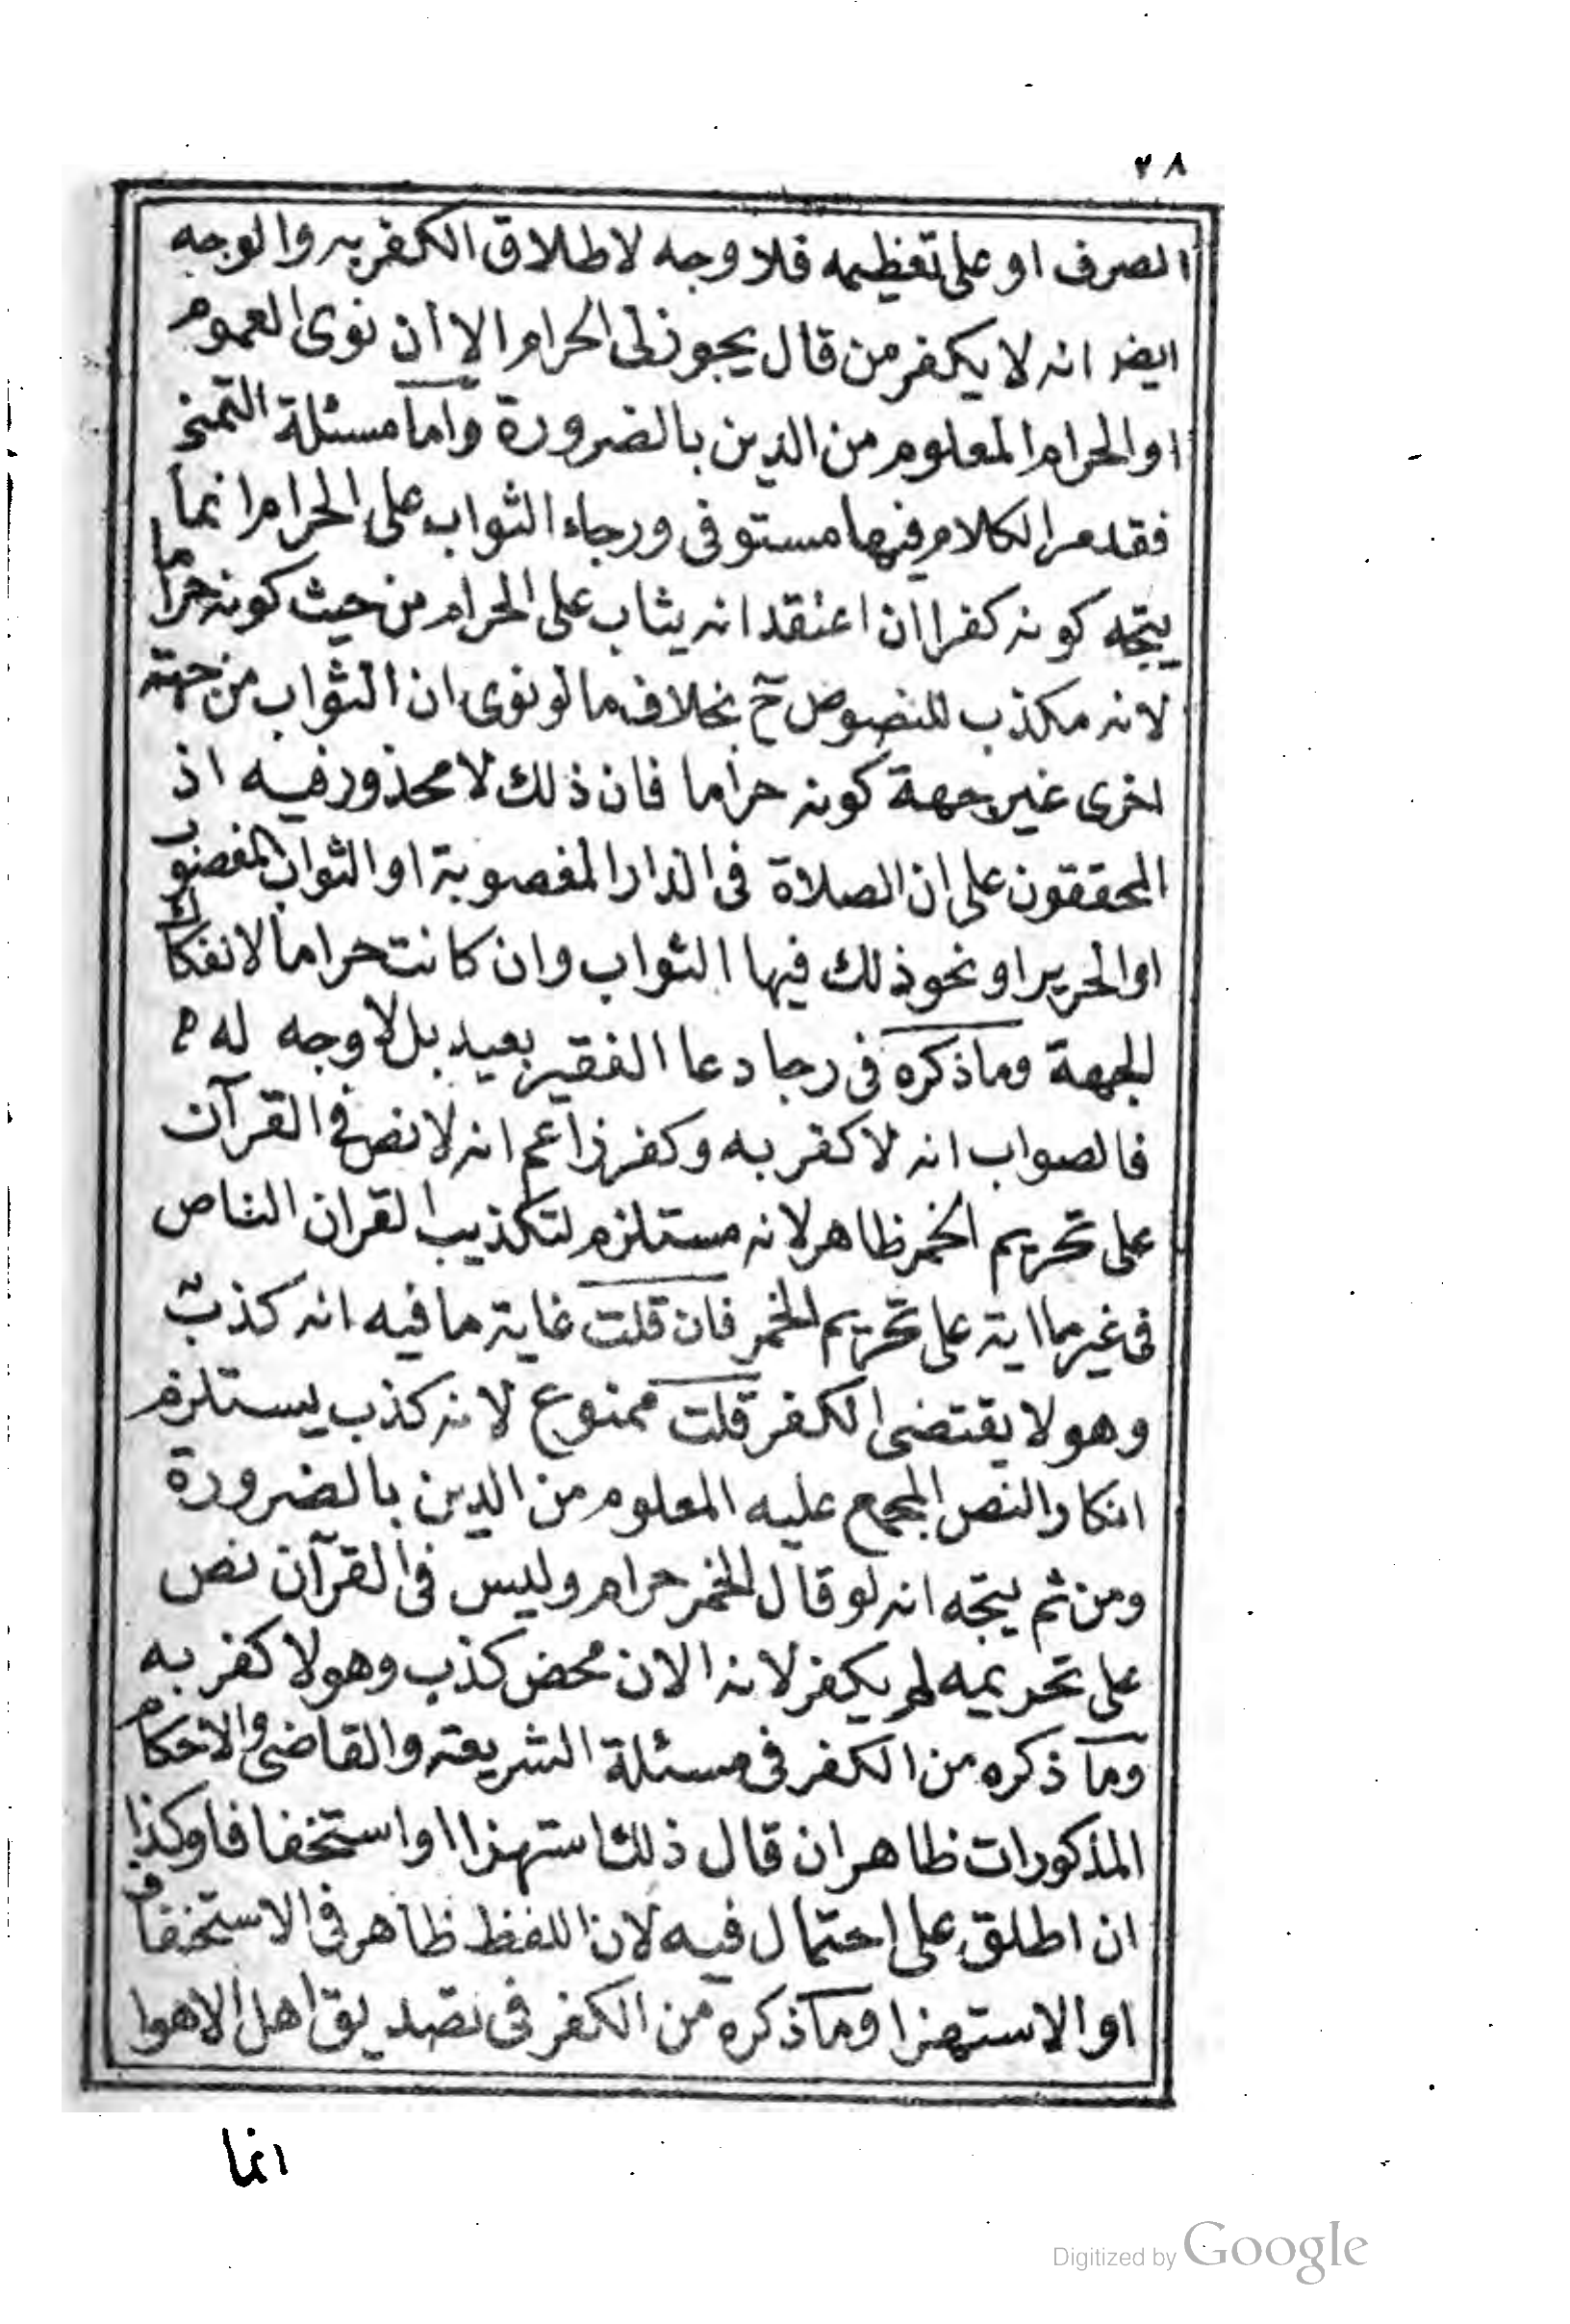 ٧٨
الصرف او على تعظيمه فلا وجه لاطلاق الكفر به والوجه
ايضا انه لا يكفر من قال يجوز لى الحرام الا ان نوى العموم
او الحرام المعلوم من الدين بالضرورة واما مسئلة التمنى
فقد مر الكلام فيها مستوفى ورجاء الثواب على الحرام انما
يتجه كونه كفرا ان اعتقد انه يثاب على الحرام من حيث كونه حراما
لانه مكذب للنصوص ح بخلاف ما لو نوى ان الثواب من جهة
اخرى غير جهة كونه حراما فان ذلك لا محذور فيه اذ
المحققون على ان الصلاة فى الدار المغصوبة او الثواب المغصوب
او الحرير او نحو ذلك فيها الثواب وان كانت حراما لانفكاك
الجهة وما ذكره فى رجا دعا الفقير بعيد بل لا وجه له
فالصواب انه لا كفر به وكفر زاعم انه لا نص فى القرآن
على تحريم الخمر ظاهر لانه مستلزم لتكذيب القران الناص
فى غير ما اية على تحريم الخمر فان قلت غاية ما فيه انه كذب
وهو لا يقتضى الكفر قلت ممنوع لانه كذب يستلزم
انكار النص المجمع عليه المعلوم من الدين بالضرورة
ومن ثم يتجه انه لو قال الخمر حرام وليس فى القرآن نص
على تحريمه لم يكفر لانه الان محض كذب وهو لا كفر به
وما ذكره من الكفر فى مسئلة الشريعة والقاضى والاحكام
المذكورات ظاهر ان قال ذلك استهزا او استخفافا وكذا
ان اطلق على احتمال فيه لان اللفظ ظاهر فى الاستخفاف
او الاستهزا وما ذكره من الكفر فى تصديق اهل الاهوا
انما
Digitized by Google